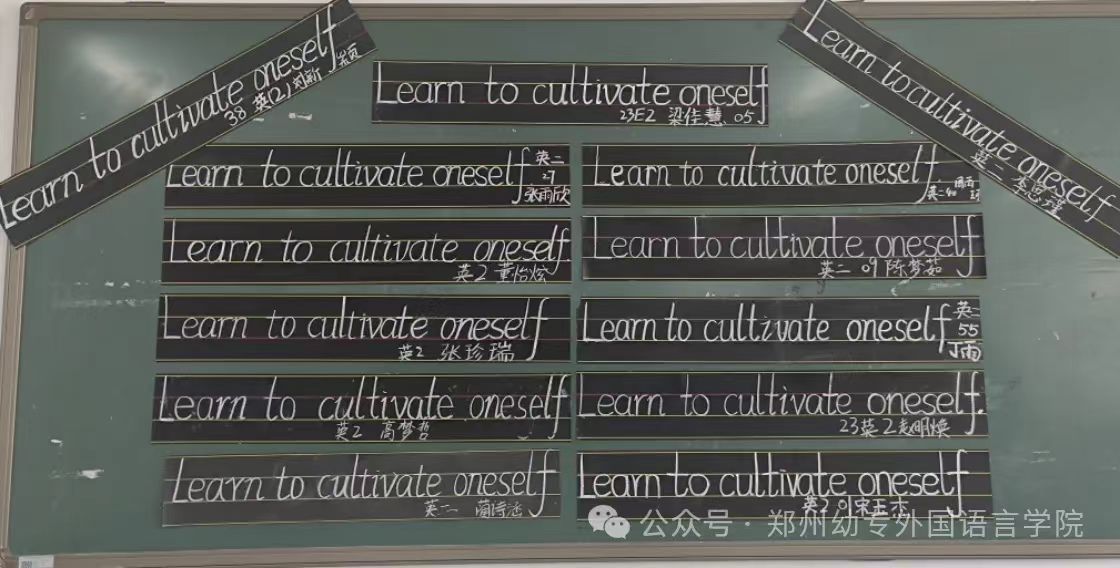 Learn to cultivate oneself
38 英(2)刘新颖
Learn to cultivate oneself
23E2 梁佳慧 05
Learn to cultivate oneself
英二 李思瑾
Learn to cultivate oneself
英二
27
张雨欣
Learn to cultivate oneself.
英二40
Learn to cultivate oneself.
英2 董怡炫
Learn to cultivate oneself
英二 09 陈梦茹
Learn to cultivate oneself
英2 张珍瑞
Learn to cultivate oneself
英二
55
丁雨
Learn to cultivate oneself
英2 高梦哲
Learn to cultivate oneself.
23英2赵明焕
Learn to cultivate oneself
英二 蔺诗涵
Learn to cultivate oneself
英2 01宋玉杰
公众号·郑州幼专外国语言学院